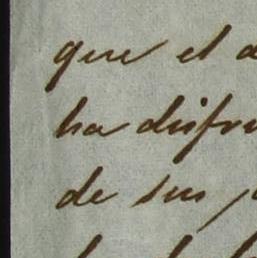 que el
ha disfru
de sus